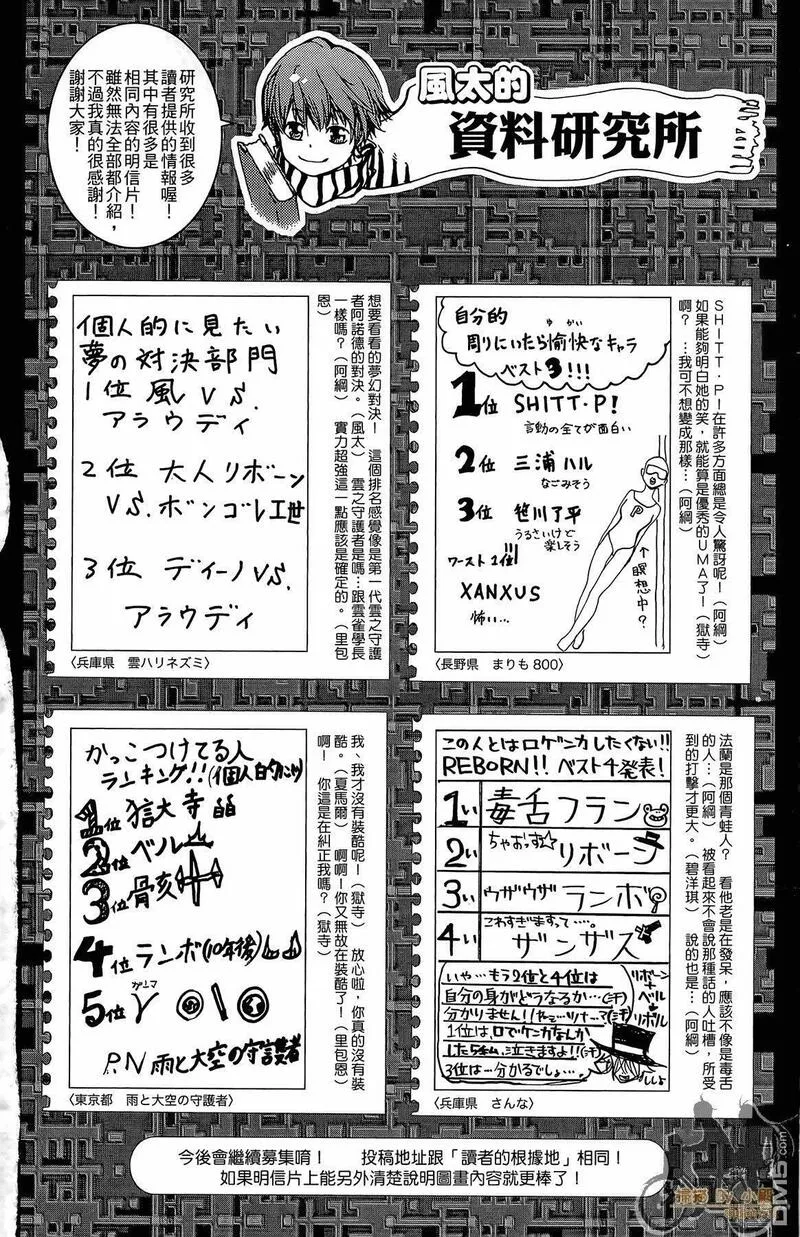 風太的
資料研究所
研究所收到很多
讀者提供的情報喔！
其中有很多是
相同內容的明信片！
雖然無法全部都介紹，
不過我真的很感謝！
謝謝大家！
SHITT・P！在許多方面總是令人驚訝呢！（阿綱）
如果能夠明白她的笑，就能算是優秀的UMA了！（獄寺）
啊？…我可不想變成那樣…（阿綱）
自分的
周りにいたら愉快なキャラ
ゆかい
ベスト3!!!
1位 SHITT・P!
言動の全てが面白い
2位 三浦ハル
なごみそう
3位 笹川了平
うるさいけど
楽しそう
ワースト1位!
XANXUS
怖い…
↑瞑想中？
P
〈長野県 まりも800〉
想要看看的夢幻對決！ 這個排名感覺像是第一代雲之守護
者阿諾德的對決。（風太） 雲之守護者是嗎…跟雲雀學長
一樣嗎？（阿綱） 實力超強這一點應該是確定的。（里包
恩）
個人的に見たい
夢の対決部門
1位 風 VS.
アラウディ
2位 大人リボーン
VS.ボンゴレⅠ世
3位 ディーノVS.
アラウディ
〈兵庫県 雲ハリネズミ〉
法蘭是那個青蛙人？ 看他老是在發呆，應該不像是毒舌
的人…（阿綱） 被看起來不會說那種話的人吐槽，所受
到的打擊才更大。（碧洋琪） 說的也是…（阿綱）
この人とは口ゲンカしたくない!!
REBORN!! ベスト4発表!
1い 毒舌フラン
2い ちゃおっす☆ リボーン
3い ウザウザ ランボ
4い これすぎますって…。 ザンザス
いや…もう2位と4位は
自分の身がどうなるか…(汗)
分かりません!
1位は、口でケンカなんか
したら私、泣きますよ!!(汗)
3位は一分かるでしょ…。
リボーン
+
ベル
↓
リボル
ししし
〈兵庫県 さんな〉
我、我才沒有裝酷呢！（獄寺） 放心啦，你真的沒有裝
酷。（夏馬爾） 啊啊！你又無故在裝酷了！（里包恩）
啊！ 你這是在糾正我嗎？（獄寺）
かっこつけてる人
ランキング!!(個人的に)
1位 獄寺
2位 ベル
3位 骸
4位 ランボ(10年後)
5位 γ
ガンマ
P.N 雨と大空の守護者
〈東京都 雨と大空の守護者〉
今後會繼續募集唷！ 投稿地址跟「讀者的根據地」相同！
如果明信片上能另外清楚說明圖畫內容就更棒了！
DM5.com